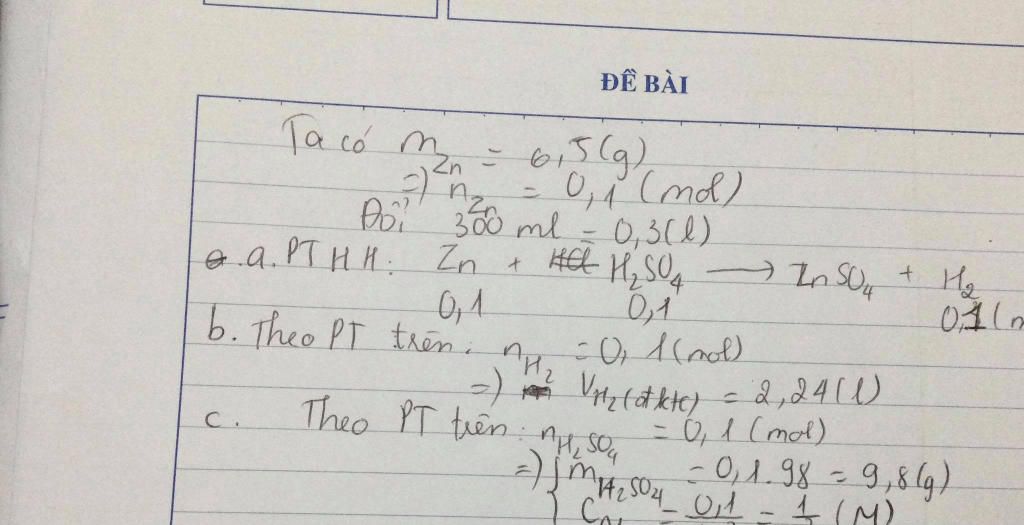 ĐỀ BÀI
Ta có m Zn = 6,5(g)
=) n Zn = 0,1 (mol)
Đổi 300 ml = 0,3(l)
a. PTHH: Zn + HCl H₂SO₄ ⟶ ZnSO₄ + H₂
0,1 0,1 0,1 (m
b. Theo PT trên: n H₂ = 0,1 (mol)
=) V H₂ (đktc) = 2,24 (l)
c. Theo PT trên: n H₂SO₄ = 0,1 (mol)
=) { m H₂SO₄ = 0,1.98 = 9,8(g)
C = 0,1 = 1 (M)